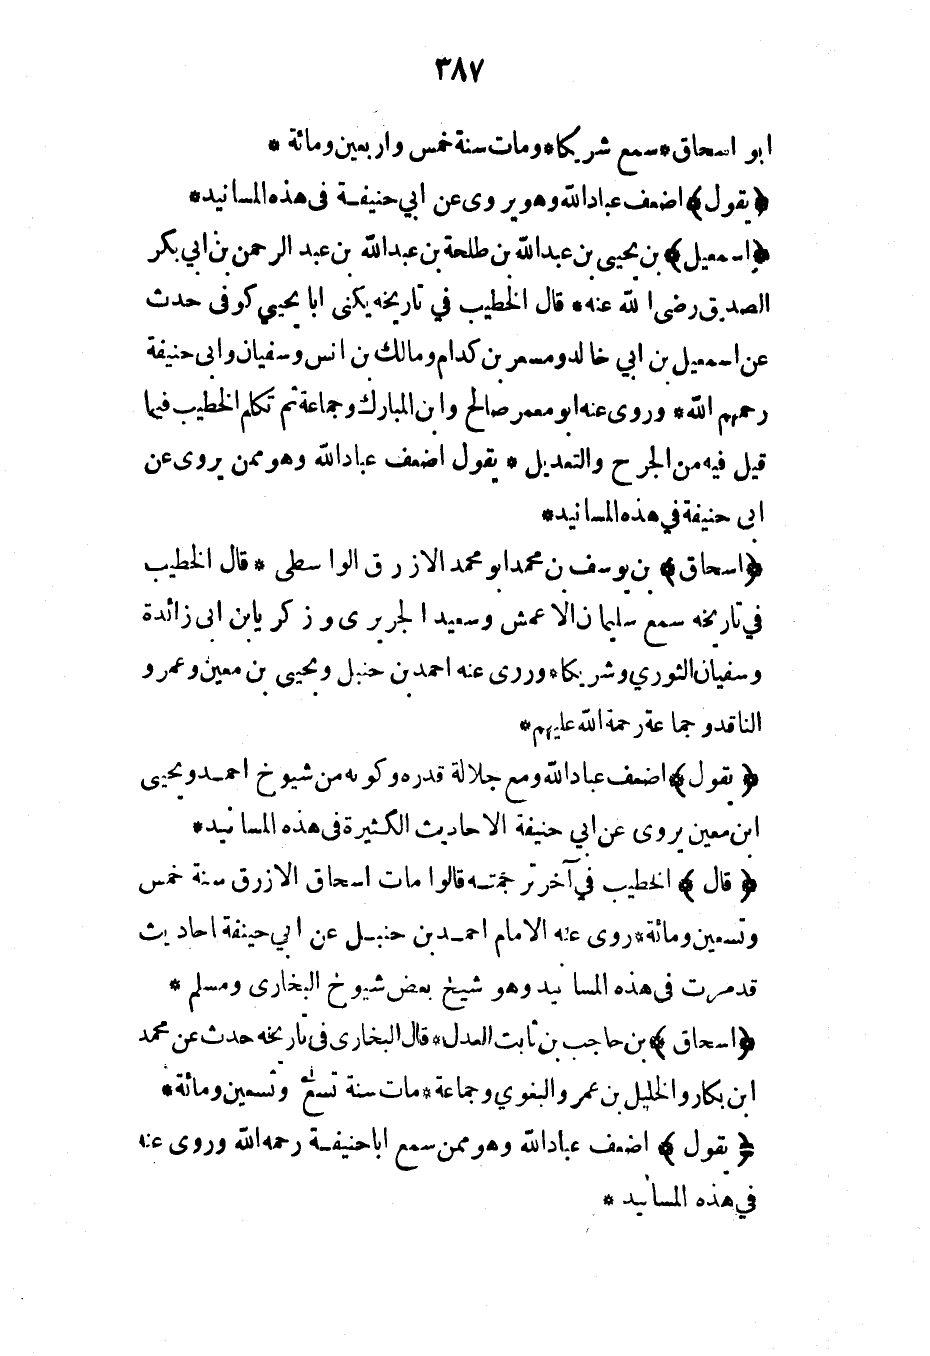 ٣٨٧
ابو اسحاق *سمع شريكا* ومات سنة خمس واربعين ومائة *
﴿يقول﴾ اضعف عباد الله وهو يروى عن ابي حنيفة فى هذه المسانيد*
﴿اسمعيل﴾ بن يحيى بن عبدالله بن طلحة بن عبدالله بن عبد الرحمن بن ابي بكر
الصديق رضى الله عنه* قال الخطيب في تاريخه يكنى ابا يحيي كوفى حدث
عن اسمعيل بن ابي خالد ومسعر بن كدام ومالك بن انس وسفيان وابى حنيفة
رحمهم الله* وروى عنه ابو معمر صالح وابن المبارك وجماعة ثم تكلم الخطيب فيما
قيل فيه من الجرح والتعديل * يقول اضعف عباد الله وهو ممن يروى عن
ابى حنيفة في هذه المسانيد*
﴿اسحاق﴾ بن يوسف بن محمد ابو محمد الازرق الواسطى * قال الخطيب
في تاريخه سمع سليمان الاعمش وسعيد الجريرى وزكريا بن ابى زائدة
وسفيان الثوري وشريكا* وروى عنه احمد بن حنبل ويحيى بن معين وعمرو
الناقد وجماعة رحمة الله عليهم*
﴿يقول﴾ اضعف عباد الله ومع جلالة قدره وكونه من شيوخ احمد ويحيى
ابن معين يروى عن ابي حنيفة الاحاديث الكثيرة فى هذه المسانيد*
﴿قال﴾ الخطيب في آخر ترجمته قالوا مات اسحاق الازرق سنة خمس
وتسعين ومائة* روى عنه الامام احمد بن حنبل عن ابي حينفة احاديث
قد مرت فى هذه المسانيد وهو شيخ بعض شيوخ البخارى ومسلم *
﴿اسحاق﴾ بن حاجب بن ثابت العدل* قال البخارى فى تاريخه حدث عن محمد
ابن بكار والخليل بن عمر والبغوي وجماعة* مات سنة تسع وتسعين ومائة*
﴿يقول﴾ اضعف عباد الله وهو ممن سمع ابا حنيفة رحمه الله وروى عنه
في هذه المسانيد *